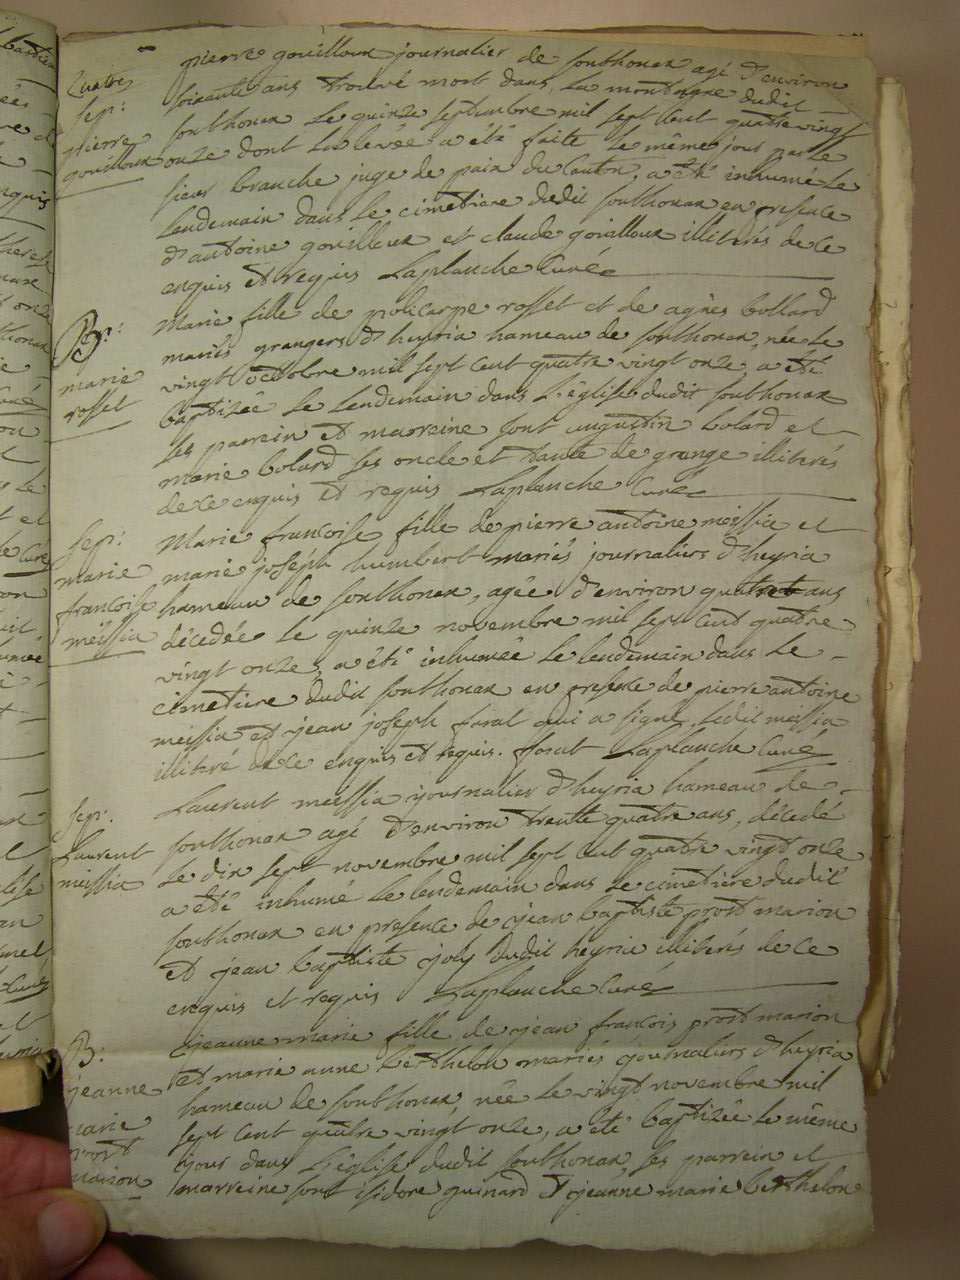 pierre gouilloux journalier de pouthonax agé d'environ
soixante ans trouvé mort dans la montagne dudit
pouthonax le quinze septembre mil sept cent quatre vingt
onze dont la levée a été faite le même jour par le
sieur branche juge de paix du Canton, a été inhumé le
lendemain dans le cimetiere dudit pouthonax en presence
d'antoine gouilloux et claude gouilloux illiterés de ce
enquis et requis Laplanche Curé
sep:
pierre
gouilloux
marie fille de policarpe rosset et de agnès bollard
mariés grangers d'heyria hameau de pouthonax, née le
vingt octobre mil sept cent quatre vingt onze, a été
baptisée le lendemain dans l'église dudit pouthonax
ses parrein et marreine sont augustin bolard et
marie bolard ses oncle et tante de grange illiterés
de ce enquis et requis Laplanche Curé
B:
marie
rosset
Marie francoise fille de pierre antoine meissia et
marie joséph humbert mariés journaliers d'heyria
hameau de pouthonax, agée d'environ quatre ans
décedée le quinze novembre mil sept cent quatre
vingt onze, a été inhumée le lendemain dans le
cimetiere dudit pouthonax en presence de pierre antoine
meissia et jean joseph forat qui a signé, ledit meissia
illiteré de ce enquis et requis. forat Laplanche Curé
sep:
marie
francoise
meissia
Laurent meissia journalier d'heyria hameau de
pouthonax agé d'environ trente quatre ans, décedé
le dix sept novembre mil sept cent quatre vingt onze
a été inhumé le lendemain dans le cimetiere dudit
pouthonax en presence de jean baptiste prost marion
et jean baptiste joly dudit heyria illiterés de ce
enquis et requis Laplanche Curé
sep:
Laurent
meissia
jeanne marie fille de jean francois prost marion
et marie anne berthelon mariés journaliers d'heyria
hameau de pouthonax, née le vingt novembre mil
sept cent quatre vingt onze, a été baptizée le même
jour dans l'église dudit pouthonax, ses parrein et
marreine sont isidore guinard et jeanne marie berthelon
B:
jeanne
marie
prost
marion